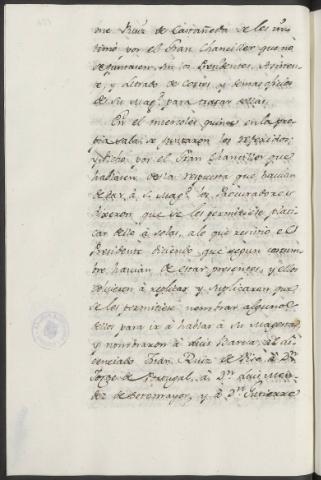 me Ruiz de Castañeda se les in-
timó por el Gran Chanciller que no
se juntasen sin los Presidentes, Asisten-
, y Letrado de Cortes, y demas
de su Mag.d para tratar dellas.
En el miercoles quince en la pro-
pia Sala se juntaron los referidos;
y dicho por el Gran Chanciller que
hablasen de la respuesta que havian
de dar à S. Mag.d los Procuradores
dixeron que se les permitiese platicar
dello à solas, a lo que resistio el
Presidente diciendo que segun costum-
bre havian de estar presentes, y ellos
bolvieron à replicar y suplicaron que
se les permitiese nombrar algunos
dellos para ir à hablar à su Magestad
y nombraron à Luis Barca, al Li-
cenciado Juan Ruiz de, à D.n
Jorge de Portugal, à D.n Luis Men-
dez de Sotomayor, y à D.n Gutierre